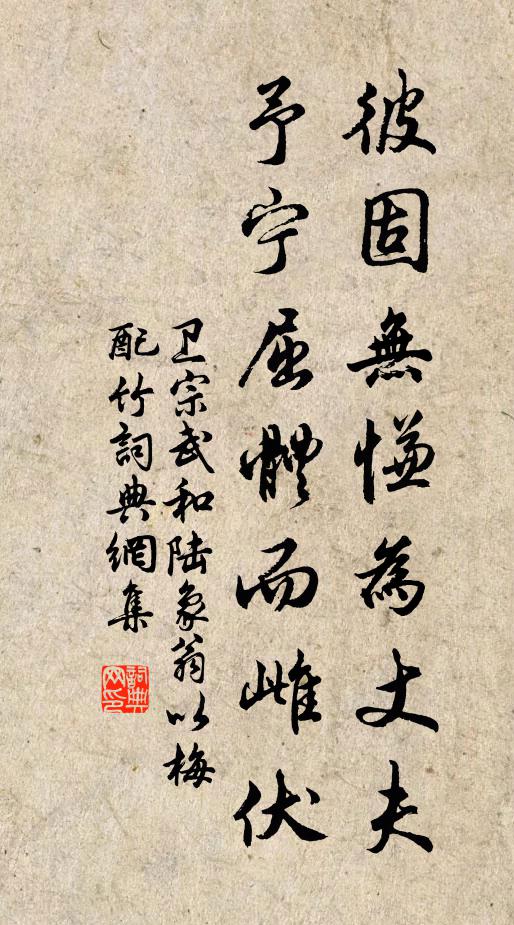 彼固無慊為丈夫
予宁屈體而雌伏
卫宗武和陆象翁以梅
配竹詞典網集
詞典网印